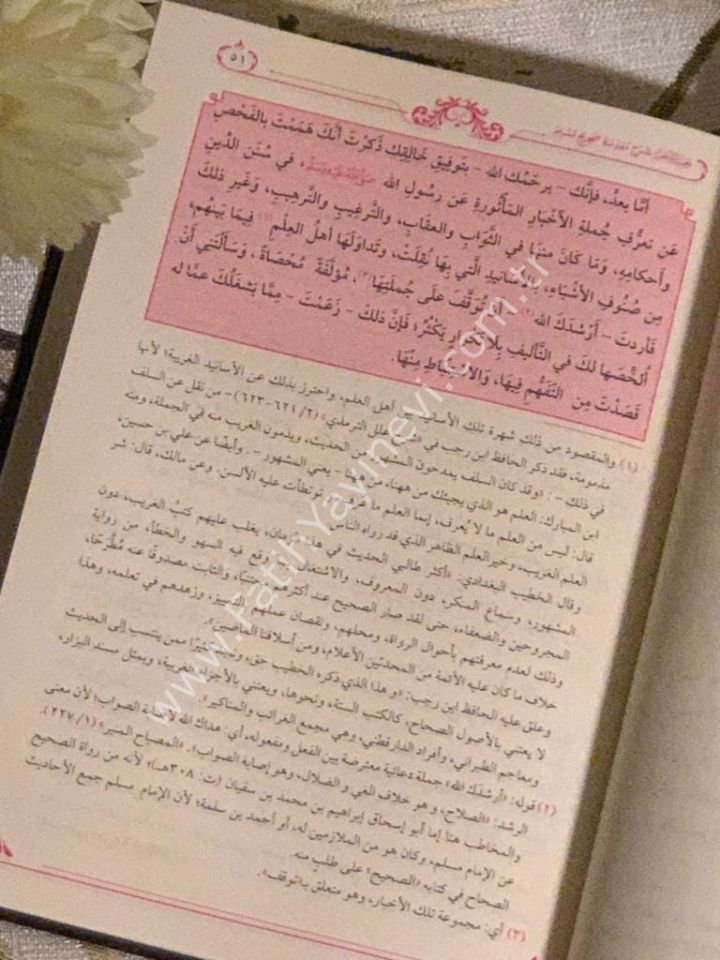 ٥١
أمَّا بعدُ، فإنَّك - يرحَمُك الله - بتَوفيقِ خَالِقِك ذَكَرْتَ أنَّكَ هَمَمْتَ بالفَحْصِ
عَن تعرُّفِ جُملةِ الأخبارِ المَأثُورةِ عَن رسُولِ الله ﷺ، في سُنَنِ الدِّينِ
وأحكامِهِ، وَمَا كَانَ منهَا في الثَّوَابِ والعقابِ، والتَّرغيبِ والتَّرهيبِ، وَغَيرِ ذلكَ
مِن صُنُوفِ الأشْيَاءِ، بالأسَانيدِ الَّتي بِهَا نُقِلَتْ، وتَداوَلَهَا أهلُ العِلْمِ (١) فِيمَا بَينَهُم،
فأردتَ - أَرْشَدَكَ الله (٢) - أنْ تُوَقَّفَ عَلَى جُملَتِهَا (٣)، مُؤلَّفَةً مُحْصَاةً، وَسَألتَني أنْ
أُلخِّصَها لكَ في التَّأليفِ بِلا تَكرارٍ يَكْثُرُ؛ فَإنَّ ذلكَ - زَعَمْتَ - مِمَّا يَشْغَلُكَ عمَّا له
قَصَدْتَ مِن التَّفَهُّمِ فِيهَا، وَالاسْتِنْبَاطِ مِنْهَا.
(١) والمقصود من ذلك شهرة تلك الأسانيد بين أهل العلم، واحترز بذلك عن الأسانيد الغريبة؛ لأنها
مذمومة، فقد ذكر الحافظ ابن رجب في «شرح علل الترمذي» (٢/ ٦٢١-٦٢٣) - من نقل عن السلف
في ذلك - : «وقد كان السلف يمدحون المشهور من الحديث، ويذمون الغريب منه في الجملة، ومنه
ابن المبارك: العلم هو الذي يجيئك من ههنا، ومن ههنا - يعني المشهور - . وأيضًا عن علي بن حسين،
قال: ليس من العلم ما لا يُعرف، إنما العلم ما عُرف، وتوطأت عليه الألسن. وعن مالك، قال: شر
العلم الغريب، وخير العلم الظاهر الذي قد رواه الناس.
وقال الخطيب البغدادي: «أكثر طالبي الحديث في هذا الزمان، يغلب عليهم كتبُ الغريب، دون
المشهور، وسماع المنكر، دون المعروف، والاشتغال بما وقع فيه السهو والخطأ، من رواية
المجروحين والضعفاء، حتى لقد صار الصحيح عند أكثرهم مجتنبًا، والثابت مصدوفًا عنه مُطَّرَحًا،
وذلك لعدم معرفتهم بأحوال الرواة، ومحلهم، ونقصان علمهم بالتمييز، وزهدهم في تعلمه، وهذا
خلاف ما كان عليه الأئمة من المحدثين الأعلام، ومن أسلافنا الماضين».
وعلق عليه الحافظ ابن رجب: «وهذا الذي ذكره الخطيب حق، ونجد كثيرًا ممن ينتسب إلى الحديث
لا يعتني بالأصول الصحاح، كالكتب الستة، ونحوها، ويعتني بالأجزاء الغريبة، وبمثل مسند البزار،
ومعاجم الطبراني، وأفراد الدارقطني، وهي مجمع الغرائب والمناكير».
(٢) قوله: «أرشدك الله» جملة دعائية معترضة بين الفعل ومفعوله، أي: هداك الله لإصابة الصواب؛ لأن معنى
الرشد: «الصلاح، وهو خلاف الغي والضلال، وهو إصابة الصواب». «المصباح المنير» (١/ ٢٢٧).
والمخاطب هنا إما أبو إسحاق إبراهيم بن محمد بن سفيان (ت: ٣٠٨هـ)؛ لأنه من رواة الصحيح
عن الإمام مسلم، وكان هو من الملازمين له، أو أحمد بن سلمة؛ لأن الإمام مسلم جمع الأحاديث
الصحاح في كتابه «الصحيح» على طلبٍ منه.
(٣) أي: مجموعة تلك الأخبار، وهو متعلق بـ«توقف».
www.FatihYayinevi.com.tr